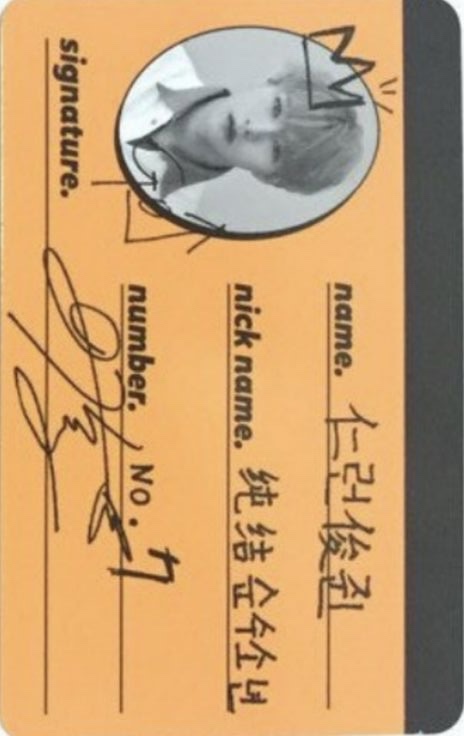 name. 仁런俊쥔
nick name. 純結순수소년
number. NO. 7
signature.